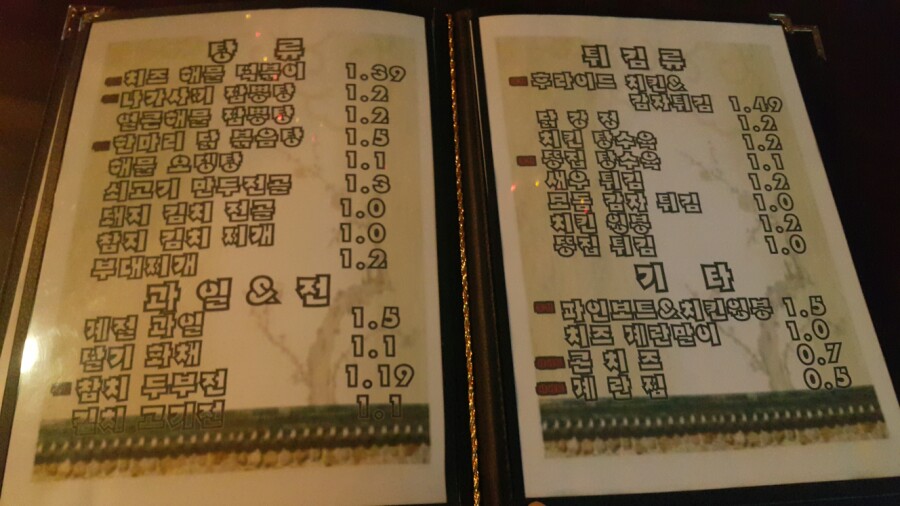 탕 류
치즈 해물 떡볶이 1.39
나가사끼 짬뽕탕 1.2
얼큰해물 짬뽕탕 1.2
한마리 닭 볶음탕 1.5
해물 오뎅탕 1.1
쇠고기 만두전골 1.3
돼지 김치 전골 1.0
참치 김치 찌개 1.0
부대찌개 1.2
과 일 & 전
계절 과일 1.5
단기 화채 1.1
참치 두부전 1.19
김치 고기전 1.1
튀 김 류
후라이드 치킨&
감자튀김 1.49
닭 강 정 1.2
치킨 탕수육 1.2
탕수육 1.1
새우 튀김 1.2
모듬 감자 튀김 1.0
치킨 윙봉 1.2
튀김 1.0
기 타
파인보트&치킨윙봉 1.5
치즈 계란말이 1.0
콘 치 즈 0.7
계 란 찜 0.5